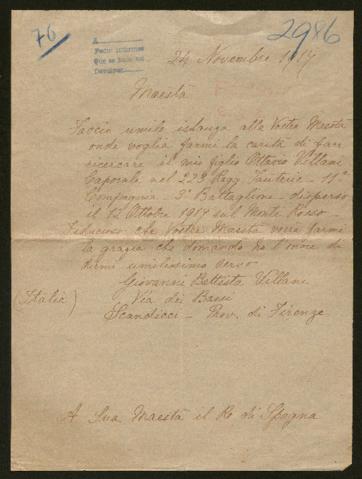 76
2986
A
Pedir informes
Que se
Devolver
24 Novembre 1917
Maestà
Faccio umile istanza alla Vostra Maestà
onde voglia farmi la carità di far
ricercare il mio figlio Ottavio Villani
Caporale nel 222º Regg. Fanteria - 11ª
Compagnia - 3º Battaglione - disperso
il 12 Ottobre 1917 sul Monte Rosso -
Fiducioso che Vostra Maestà vorrà farmi
la grazia che domando ho l'onore di
dirmi umilissimo servo
Giovanni Battista Villani
(Italia)
Via dei
Scandicci - Prov. di Firenze
A Sua Maestà il Re di Spagna